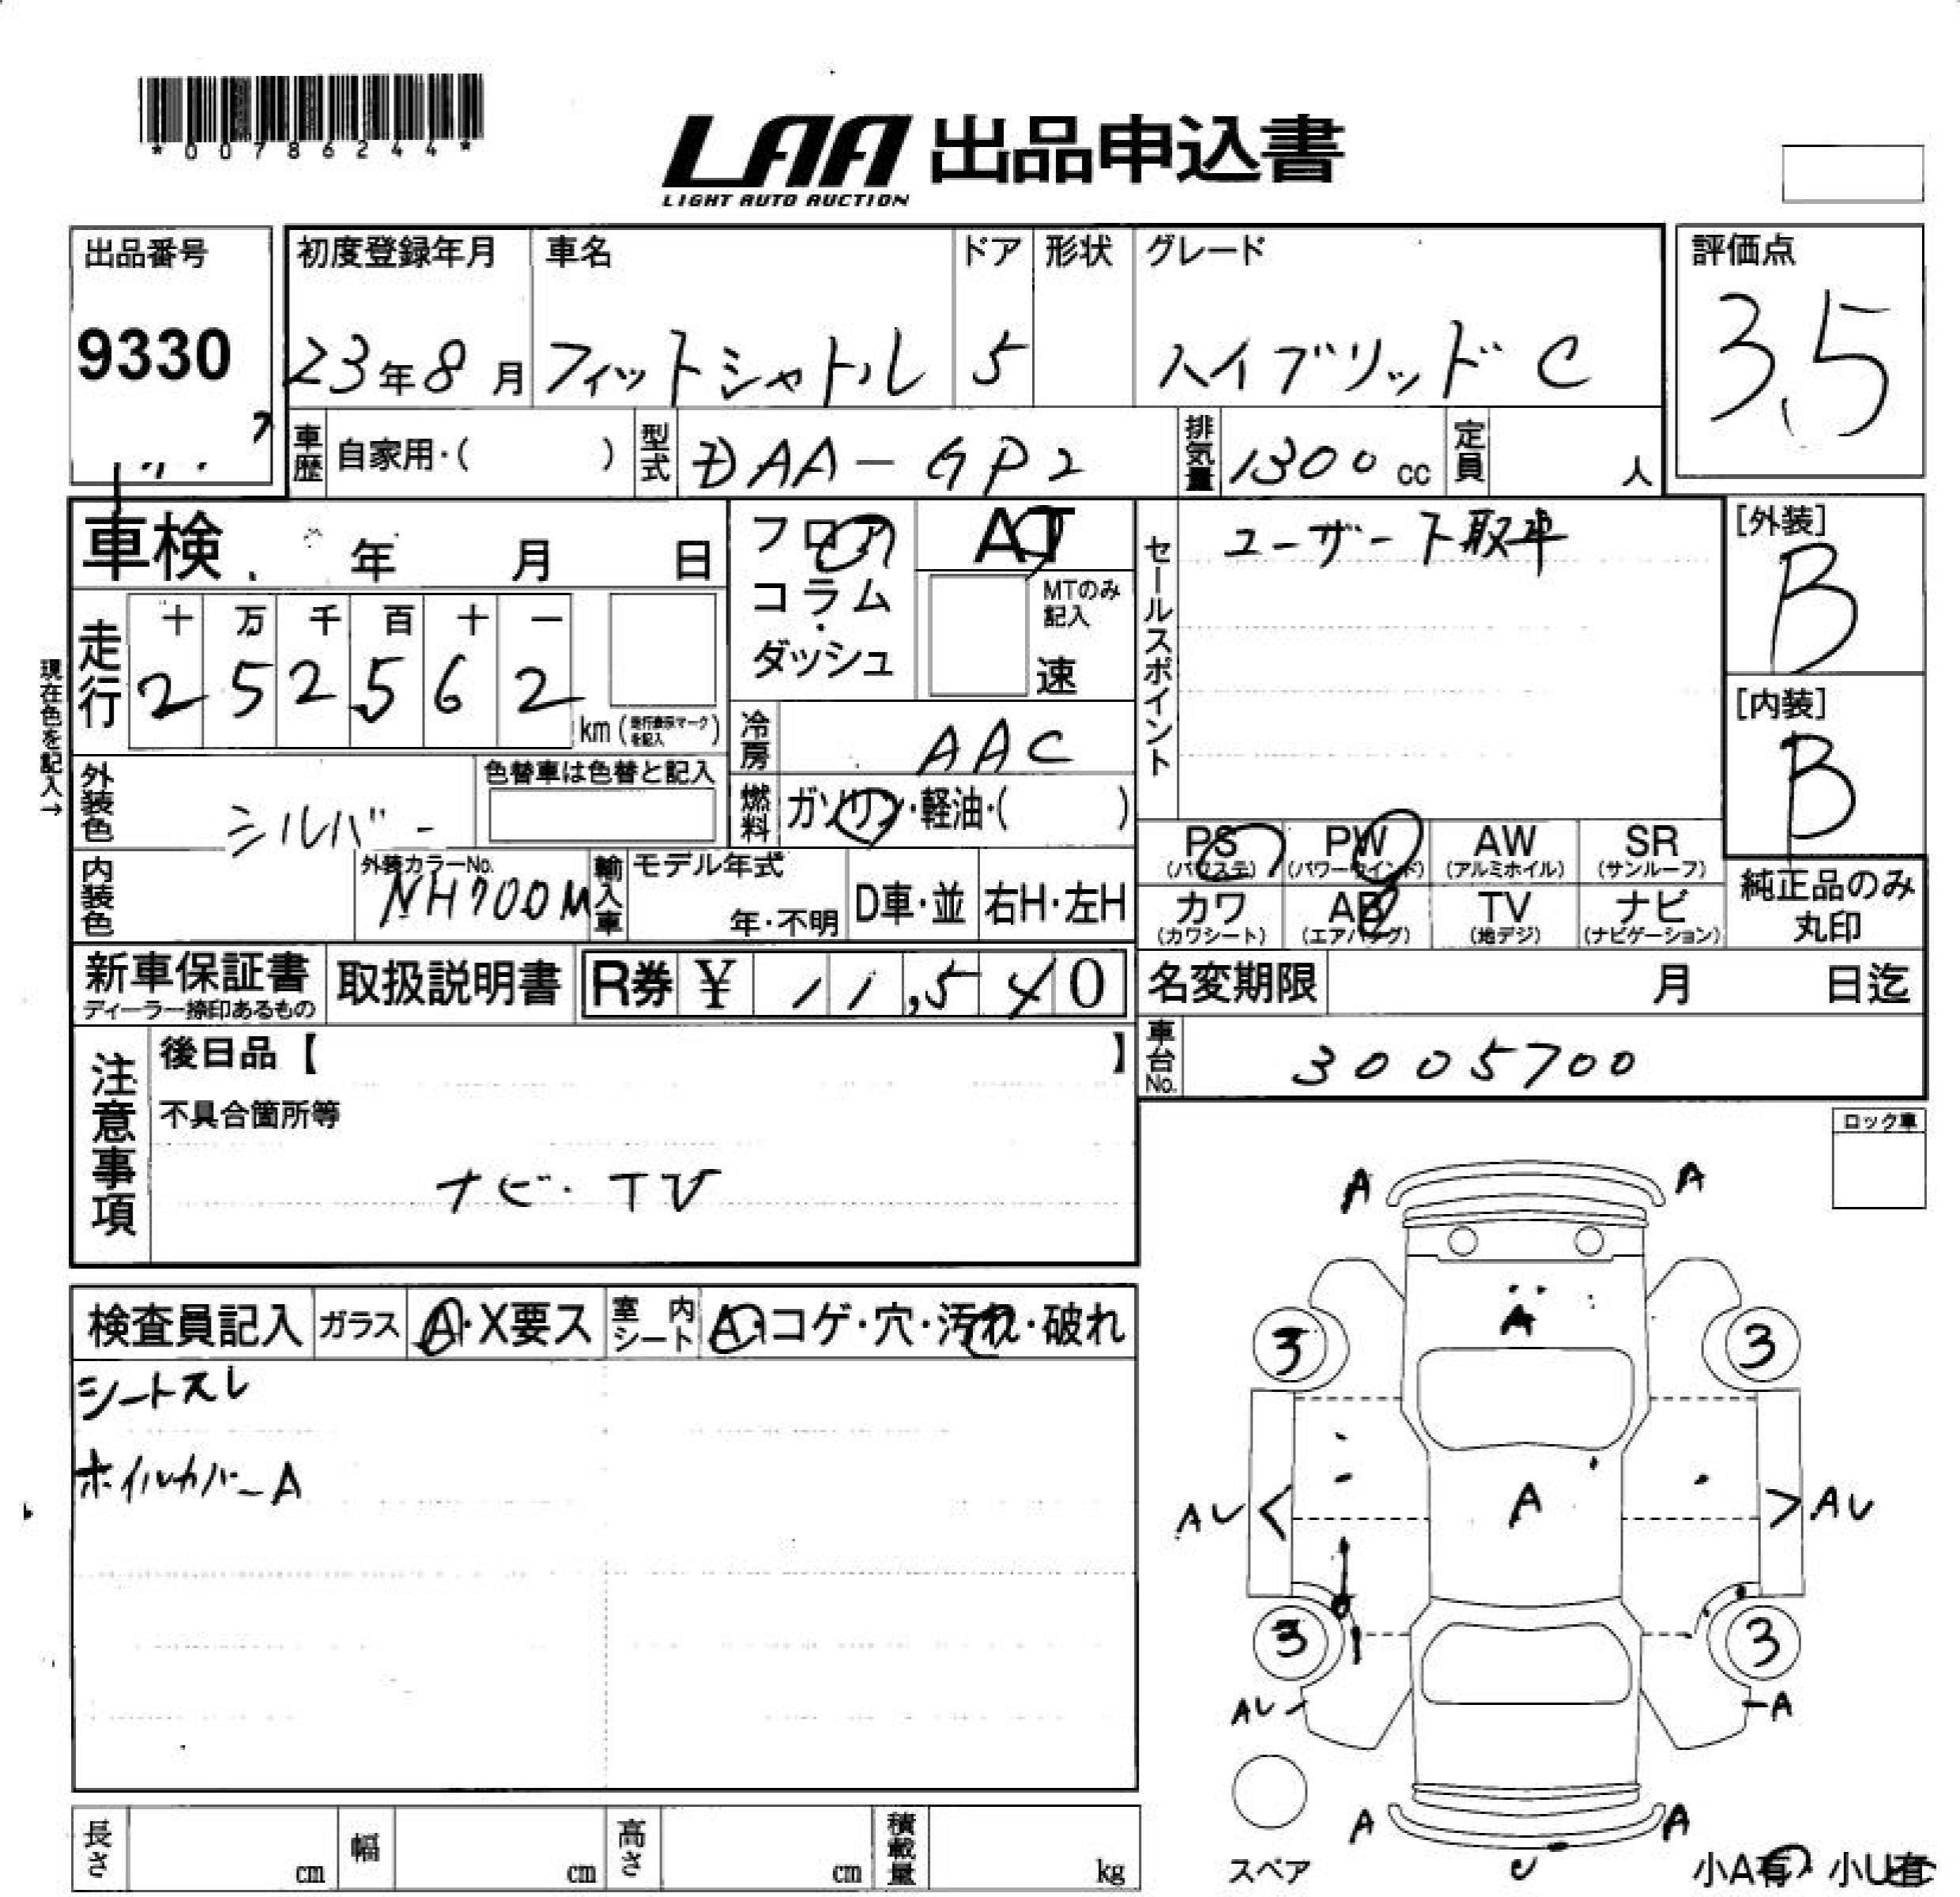 *00786244*
LAA 出品申込書
LIGHT AUTO AUCTION
出品番号 初度登録年月 車名 ドア 形状 グレード 評価点
9330 23年8月 フィットシャトル 5 ハイブリッド C 3.5
車歴 自家用・( ) 型式 DAA-GP2 排気量 1300cc 定員 人
車検 年 月 日
フロア コラム・ダッシュ
AT
MTのみ記入
速
セールスポイント
ユーザー下取車
[外装]
B
[内装]
B
現在色を記入→
走行 十 万 千 百 十 一
2 5 2 5 6 2 km (走行表示マークを記入)
冷房 AAC
燃料 ガソリン・軽油・( )
外装色 シルバー
色替車は色替と記入
内装色
外装カラーNo.
NH700M
輸入車 モデル年式 年・不明 D車・並 右H・左H
PS (パワステ) PW (パワーウインド) AW (アルミホイル) SR (サンルーフ)
カワ (カワシート) AB (エアバッグ) TV (地デジ) ナビ (ナビゲーション)
純正品のみ
丸印
新車保証書 ディーラー捺印あるもの
取扱説明書
R券 ¥ 11,540
名変期限 月 日迄
車台No. 3005700
注意事項
後日品【 】
不具合箇所等
ナビ・TV
ロック車
検査員記入 ガラス A・X要ス 室内シート A・コゲ・穴・汚れ・破れ
シートスレ
ホイルカバーA
A A
A
3 3
AU A AU
3 3
AU A
A A
U
スペア
小A有・小U有
長さ cm 幅 cm 高さ cm 積載量 kg